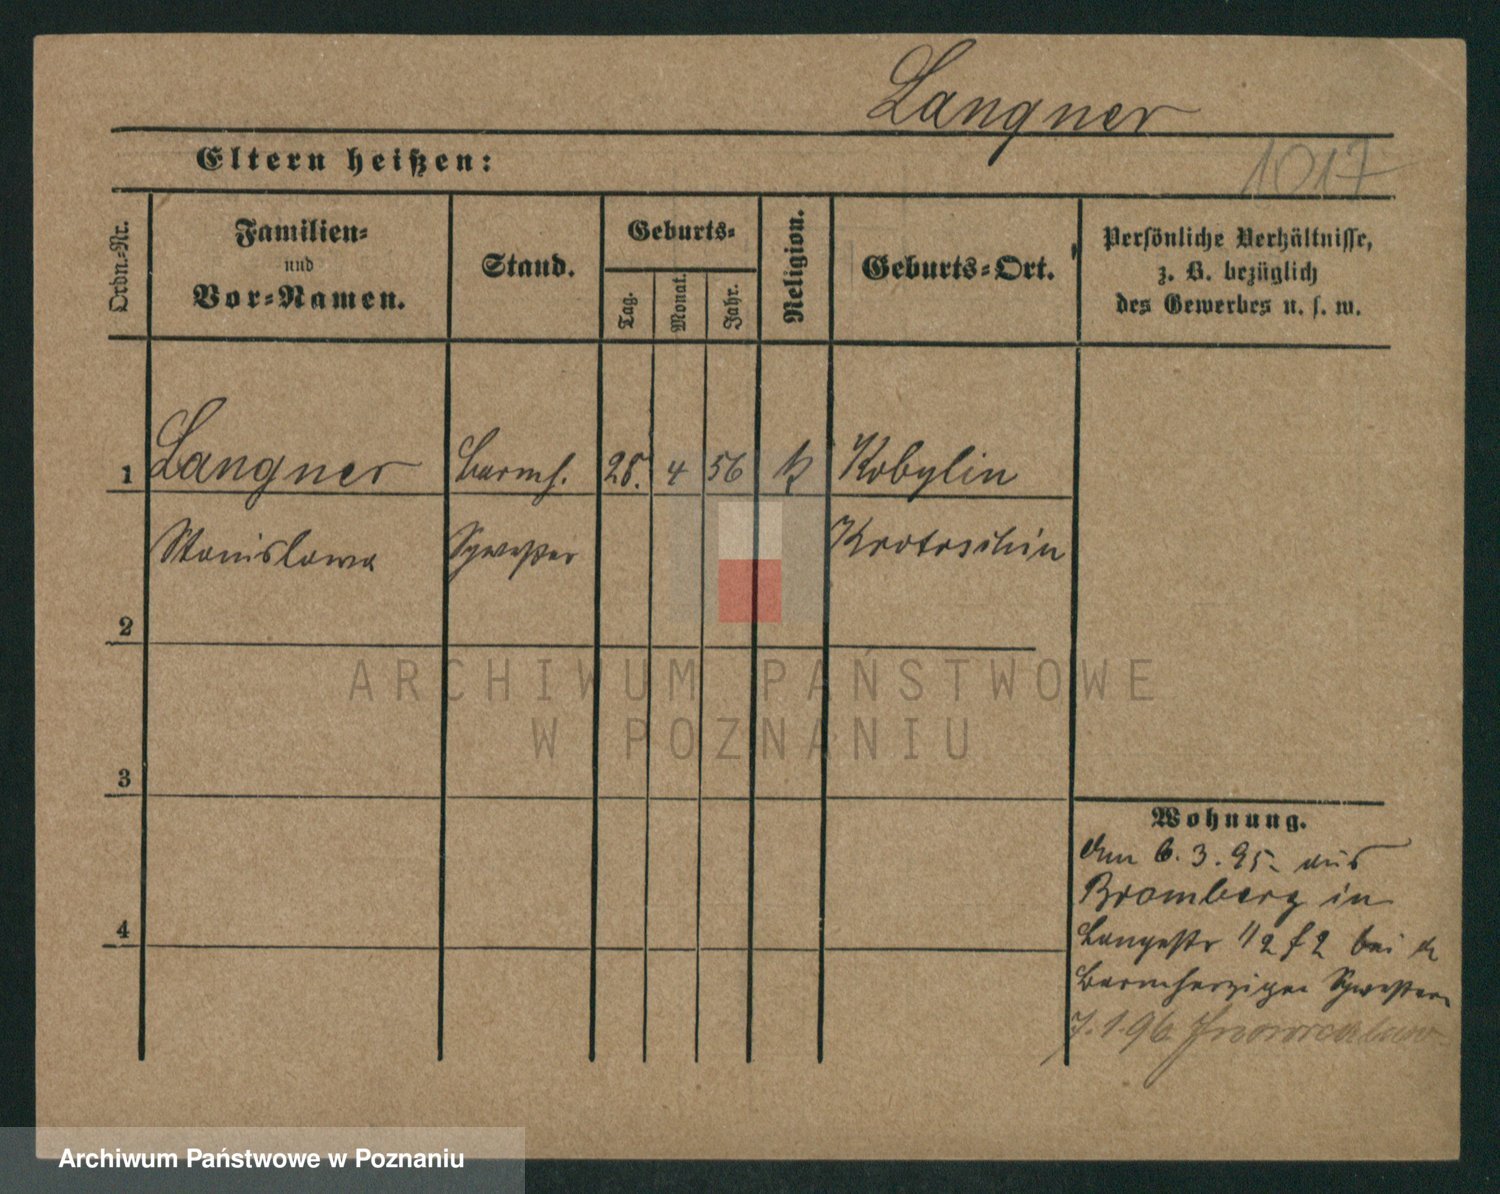 Langner
1017
Eltern heißen:
Ordn.-Nr.
Familien-
und
Vor-Namen.
Stand.
Geburts-
Tag.
Monat.
Jahr.
Religion.
Geburts-Ort.
Persönliche Verhältnisse,
z. B. bezüglich
des Gewerbes u. s. w.
1 Langner Barmh. 4 56 k Kobylin
Stanislawa Schwester Krotoschin
2
3
4
Wohnung.
den 6. 3. 95. aus
Bromberg in
Langestr 2 bei d
Barmherzigen Schwestern
7.1.96 Inowrazlaw
ARCHIWUM PAŃSTWOWE
W POZNANIU
Archiwum Państwowe w Poznaniu